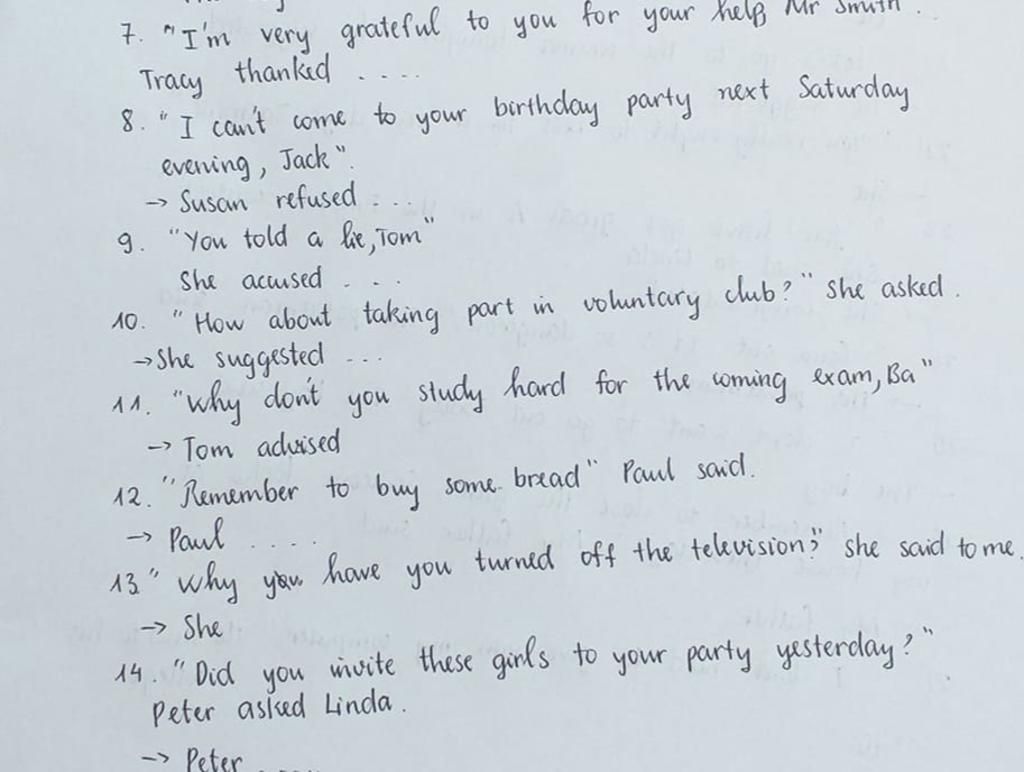 7. "I'm very grateful to you for your help Mr Smith.
Tracy thanked ....
8. "I can't come to your birthday party next Saturday
evening, Jack".
→ Susan refused ....
9. "You told a lie, Tom"
She accused ....
10. "How about taking part in voluntary club?" she asked.
→ She suggested ...
11. "Why don't you study hard for the coming exam, Ba"
→ Tom advised
12. "Remember to buy some bread" Paul said.
→ Paul ....
13 " Why have you turned off the television?" she said to me.
→ She
14. "Did you invite these girls to your party yesterday?"
Peter asked Linda.
→ Peter ....